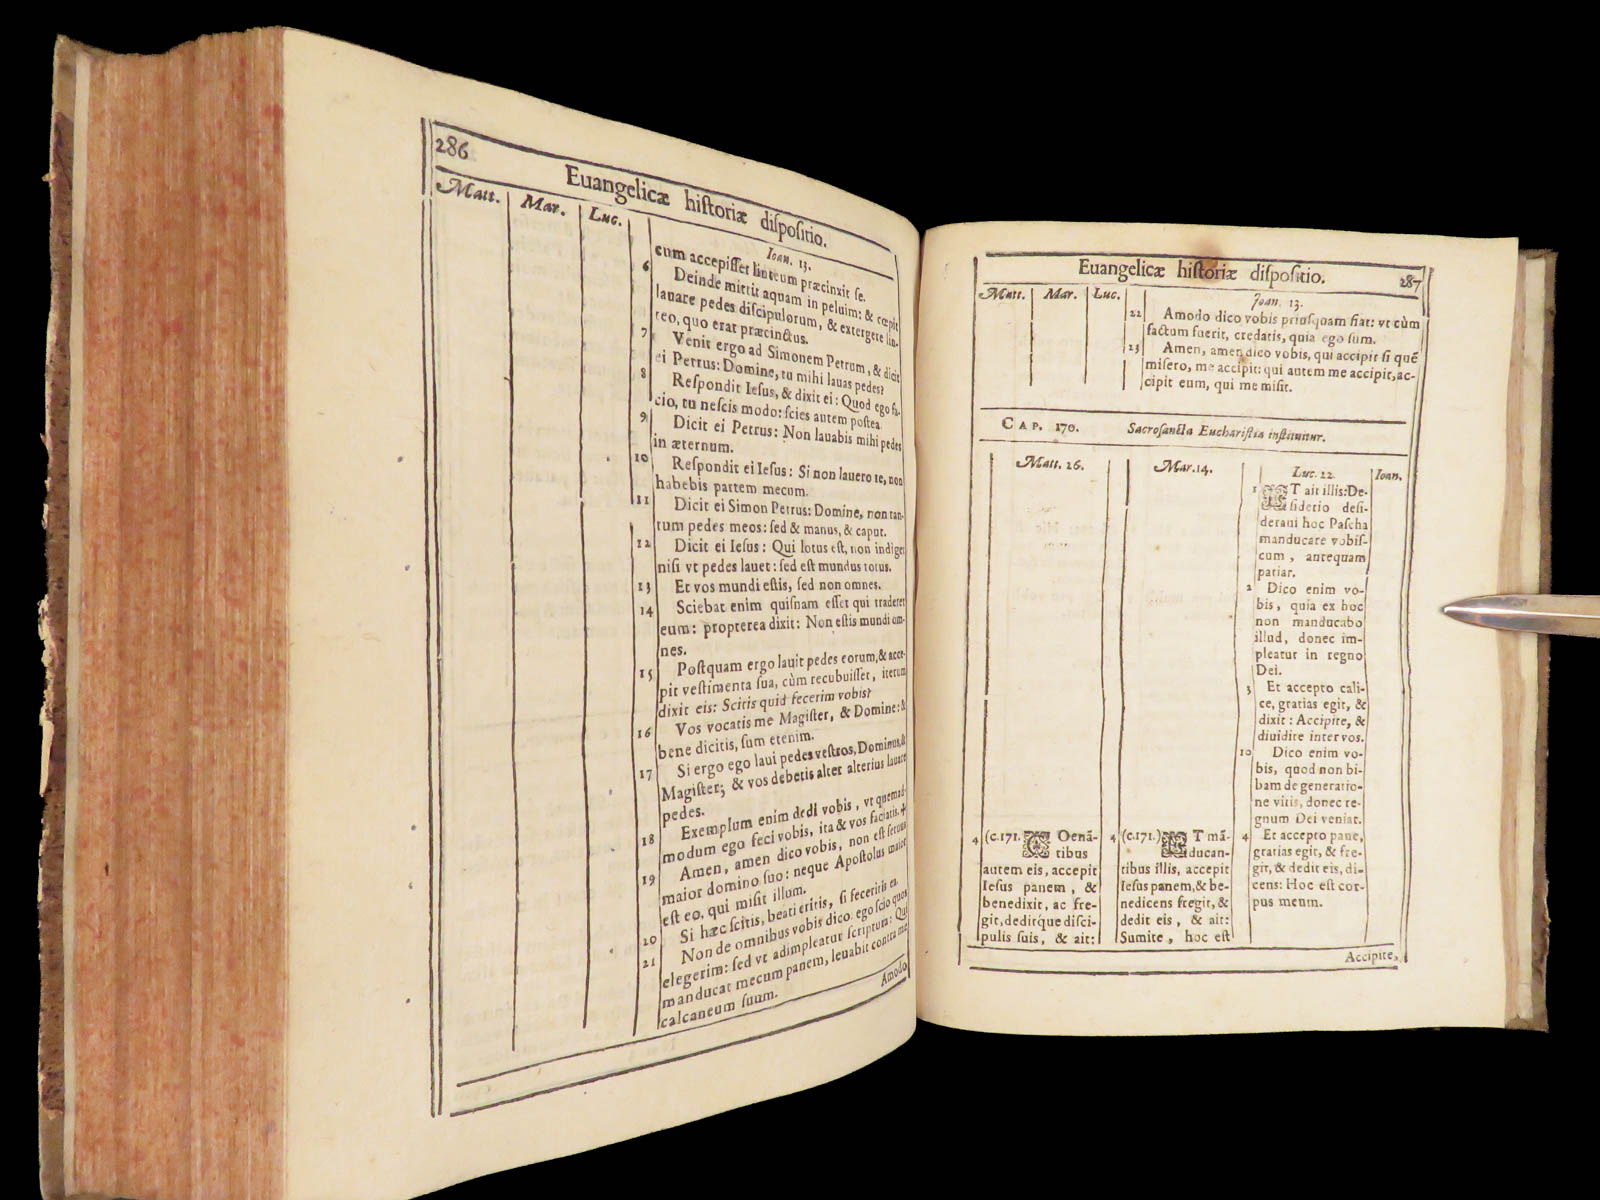 286
Euangelicæ hiſtoriæ diſpoſitio.
Matt. Mar. Luc. Ioan. 13.
cum accepiſſet linteum præcinxit ſe.
6 Deinde mittit aquam in peluim: & cœpit
lauare pedes diſcipulorum, & extergere lin-
teo, quo erat præcinctus.
7 Venit ergo ad Simonem Petrum, & dicit
ei Petrus: Domine, tu mihi lauas pedes?
8 Reſpondit Ieſus, & dixit ei: Quod ego fa-
cio, tu neſcis modo: ſcies autem poſtea
9 Dicit ei Petrus: Non lauabis mihi pedes
in æternum.
10 Reſpondit ei Ieſus: Si non lauero te, non
habebis partem mecum.
11 Dicit ei Simon Petrus: Domine, non tan-
tum pedes meos: ſed & manus, & caput.
12 Dicit ei Ieſus: Qui lotus eſt, non indiget
niſi vt pedes lauet: ſed eſt mundus totus.
13 Et vos mundi eſtis, ſed non omnes.
14 Sciebat enim quiſnam eſſet qui traderet
eum: propterea dixit: Non eſtis mundi om-
nes.
15 Poſtquam ergo lauit pedes eorum, & acce-
pit veſtimenta ſua, cùm recubuiſſet, iterum
dixit eis: Scitis quid fecerim vobis?
16 Vos vocatis me Magiſter, & Domine: &
bene dicitis, ſum etenim.
17 Si ergo ego laui pedes veſtros, Dominus, &
Magiſter; & vos debetis alter alterius lauare
pedes.
18 Exemplum enim dedi vobis, vt quemad-
modum ego feci vobis, ita & vos faciatis.
19 Amen, amen dico vobis, non eſt ſeruus
maior domino ſuo: neque Apoſtolus maior
eſt eo, qui miſit illum.
20 Si hæc ſcitis, beati eritis, ſi feceritis ea.
21 Non de omnibus vobis dico: ego ſcio quos
elegerim: ſed vt adimpleatur ſcriptura: Qui
manducat mecum panem, leuabit contra me
calcaneum ſuum.
Amodo
Euangelicæ hiſtoriæ diſpoſitio. 287
Matt. Mar. Luc. Ioan. 13.
22 Amodo dico vobis priuſquam fiat: vt cùm
factum fuerit, credatis, quia ego ſum.
23 Amen, amen dico vobis, qui accipit ſi quē
miſero, me accipit: qui autem me accipit, ac-
cipit eum, qui me miſit.
CAP. 170. Sacroſancta Euchariſtia inſtituitur.
Matt. 26. Mar. 14. Luc. 22. Ioan.
1 ET ait illis: De-
ſiderio deſi-
deraui hoc Paſcha
manducare vobiſ-
cum, antequam
patiar.
2 Dico enim vo-
bis, quia ex hoc
non manducabo
illud, donec im-
pleatur in regno
Dei.
3 Et accepto cali-
ce, gratias egit, &
dixit: Accipite, &
diuidite inter vos.
10 Dico enim vo-
bis, quod non bi-
bam de generatio-
ne vitis, donec re-
gnum Dei veniat.
4 Et accepto pane,
gratias egit, & fre-
git, & dedit eis, di-
cens: Hoc eſt cor-
pus meum.
4 (c.171. COenā-
tibus
autem eis, accepit
Ieſus panem, &
benedixit, ac fre-
git, deditque diſci-
pulis ſuis, & ait:
4 (c.171.) ET mā-
ducan-
tibus illis, accepit
Ieſus panem, & be-
nedicens fregit, &
dedit eis, & ait:
Sumite, hoc eſt
Accipite,